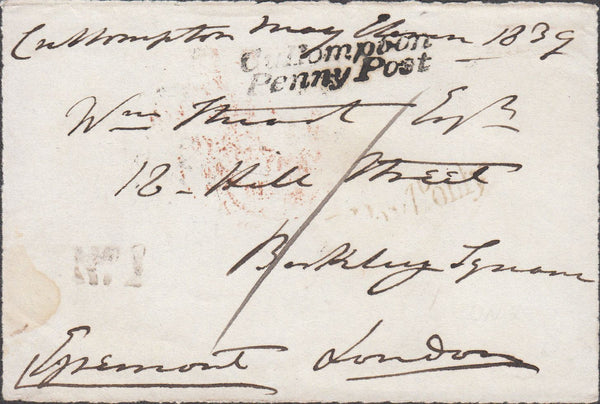 Cullompton May Eleven 1839
Cullompton
Penny Post
Wm Stuart Esqr
12 - Hill Street
Berkley Square
Egremont London